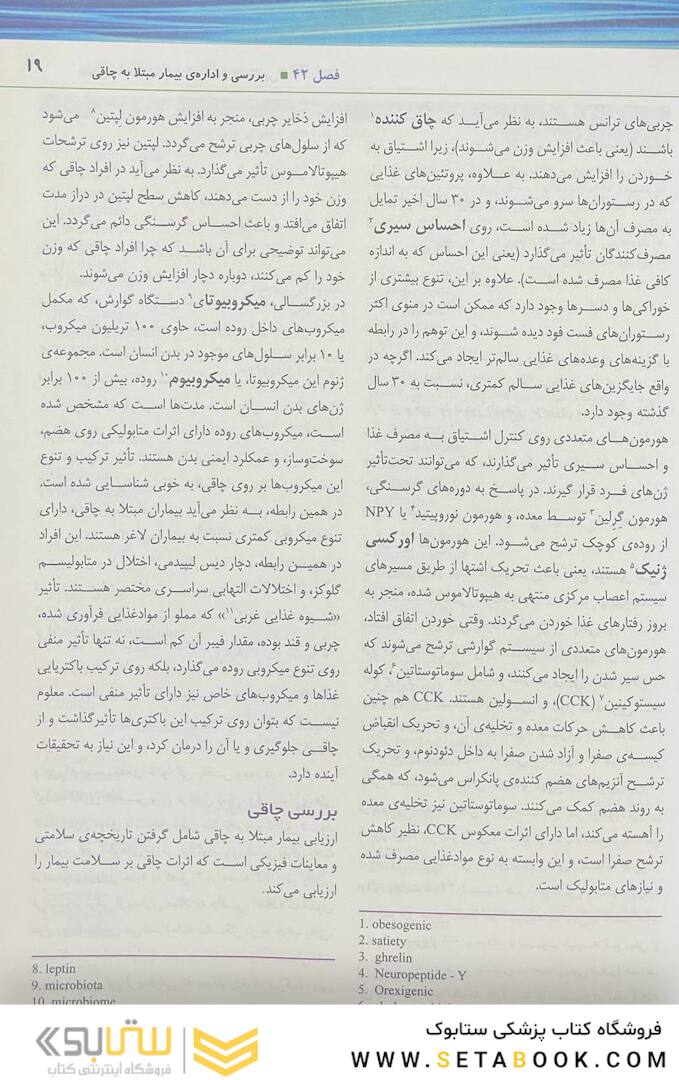 فصل ۴۲ ■ بررسی و اداره‌ی بیمار مبتلا به چاقی
۱۹
چربی‌های ترانس هستند، به نظر می‌آید که چاق کننده۱
باشند (یعنی باعث افزایش وزن می‌شوند)، زیرا اشتیاق به
خوردن را افزایش می‌دهند. به علاوه، پروتئین‌های غذایی
که در رستوران‌ها سرو می‌شوند، و در ۳۰ سال اخیر تمایل
به مصرف آن‌ها زیاد شده است، روی احساس سیری۲
مصرف‌کنندگان تأثیر می‌گذارد (یعنی این احساس که به اندازه
کافی غذا مصرف شده است). علاوه بر این، تنوع بیشتری از
خوراکی‌ها و دسرها وجود دارد که ممکن است در منوی اکثر
رستوران‌های فست فود دیده شوند، و این توهم را در رابطه
با گزینه‌های وعده‌های غذایی سالم‌تر ایجاد می‌کند. اگرچه در
واقع جایگزین‌های غذایی سالم کمتری، نسبت به ۳۰ سال
گذشته وجود دارد.
هورمون‌های متعددی روی کنترل اشتیاق به مصرف غذا
و احساس سیری تأثیر می‌گذارند، که می‌توانند تحت‌تأثیر
ژن‌های فرد قرار گیرند. در پاسخ به دوره‌های گرسنگی،
هورمون گرلین۳ توسط معده، و هورمون نوروپپتید۴ یا NPY
از روده‌ی کوچک ترشح می‌شود. این هورمون‌ها اورکسی
ژنیک۵ هستند، یعنی باعث تحریک اشتها از طریق مسیرهای
سیستم اعصاب مرکزی منتهی به هیپوتالاموس شده، منجر به
بروز رفتارهای غذا خوردن می‌گردند. وقتی خوردن اتفاق افتاد،
هورمون‌های متعددی از سیستم گوارشی ترشح می‌شوند که
حس سیر شدن را ایجاد می‌کنند، و شامل سوماتوستاتین۶، کوله
سیستوکینین۷ (CCK)، و انسولین هستند. CCK هم چنین
باعث کاهش حرکات معده و تخلیه‌ی آن، و تحریک انقباض
کیسه‌ی صفرا و آزاد شدن صفرا به داخل دئودنوم، و تحریک
ترشح آنزیم‌های هضم کننده‌ی پانکراس می‌شود، که همگی
به روند هضم کمک می‌کنند. سوماتوستاتین نیز تخلیه‌ی معده
را آهسته می‌کند، اما دارای اثرات معکوس CCK، نظیر کاهش
ترشح صفرا است، و این وابسته به نوع موادغذایی مصرف شده
و نیازهای متابولیک است.
1. obesogenic
2. satiety
3. ghrelin
4. Neuropeptide - Y
5. Orexigenic
افزایش ذخایر چربی، منجر به افزایش هورمون لپتین۸ می‌شود
که از سلول‌های چربی ترشح می‌گردد. لپتین نیز روی ترشحات
هیپوتالاموس تأثیر می‌گذارد. به نظر می‌آید در افراد چاقی که
وزن خود را از دست می‌دهند، کاهش سطح لپتین در دراز مدت
اتفاق می‌افتد و باعث احساس گرسنگی دائم می‌گردد. این
می‌تواند توضیحی برای آن باشد که چرا افراد چاقی که وزن
خود را کم می‌کنند، دوباره دچار افزایش وزن می‌شوند.
در بزرگسالی، میکروبیوتای۹ دستگاه گوارش، که مکمل
میکروب‌های داخل روده است، حاوی ۱۰۰ تریلیون میکروب،
یا ۱۰ برابر سلول‌های موجود در بدن انسان است. مجموعه‌ی
ژنوم این میکروبیوتا، یا میکروبیوم۱۰ روده، بیش از ۱۰۰ برابر
ژن‌های بدن انسان است. مدت‌ها است که مشخص شده
است، میکروب‌های روده دارای اثرات متابولیکی روی هضم،
سوخت‌وساز، و عملکرد ایمنی بدن هستند. تأثیر ترکیب و تنوع
این میکروب‌ها بر روی چاقی، به خوبی شناسایی شده است.
در همین رابطه، به نظر می‌آید بیماران مبتلا به چاقی، دارای
تنوع میکروبی کمتری نسبت به بیماران لاغر هستند. این افراد
در همین رابطه، دچار دیس لیپیدمی، اختلال در متابولیسم
گلوکز، و اختلالات التهابی سراسری مختصر هستند. تأثیر
«شیوه غذایی غربی۱۱» که مملو از موادغذایی فرآوری شده،
چربی و قند بوده، مقدار فیبر آن کم است، نه تنها تأثیر منفی
روی تنوع میکروبی روده می‌گذارد، بلکه روی ترکیب باکتریایی
غذاها و میکروب‌های خاص نیز دارای تأثیر منفی است. معلوم
نیست که بتوان روی ترکیب این باکتری‌ها تأثیرگذاشت و از
چاقی جلوگیری و یا آن را درمان کرد، و این نیاز به تحقیقات
آینده دارد.
بررسی چاقی
ارزیابی بیمار مبتلا به چاقی شامل گرفتن تاریخچه‌ی سلامتی
و معاینات فیزیکی است که اثرات چاقی بر سلامت بیمار را
ارزیابی می‌کند.
8. leptin
9. microbiota
10. microbiome
فروشگاه کتاب پزشکی ستابوک
WWW.SETABOOK.COM
ستابوک
فروشگاه اینترنتی کتاب